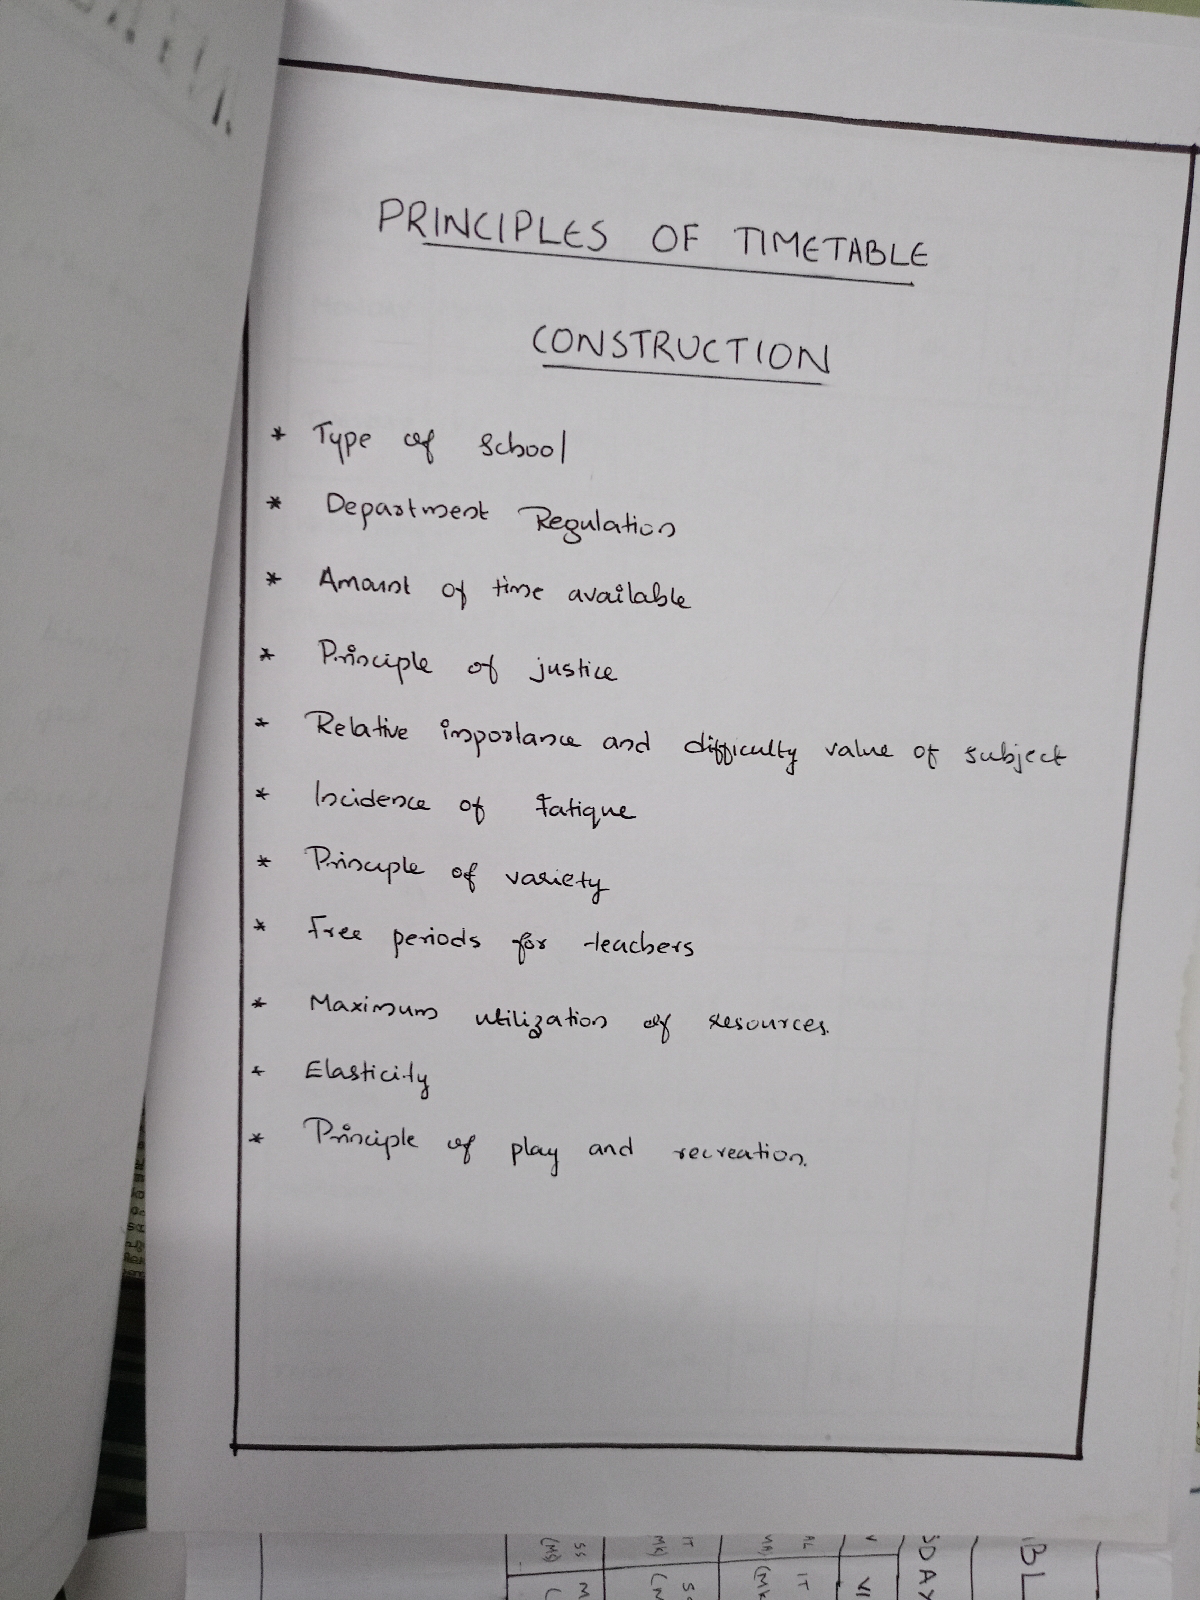 PRINCIPLES OF TIMETABLE
CONSTRUCTION
* Type of school
* Department Regulation
* Amount of time available
* Principle of justice
* Relative importance and difficulty value of subject
* Incidence of fatique
* Principle of variety
* Free periods for teachers
* Maximum utilization of resources.
* Elasticity
* Principle of play and recreation.